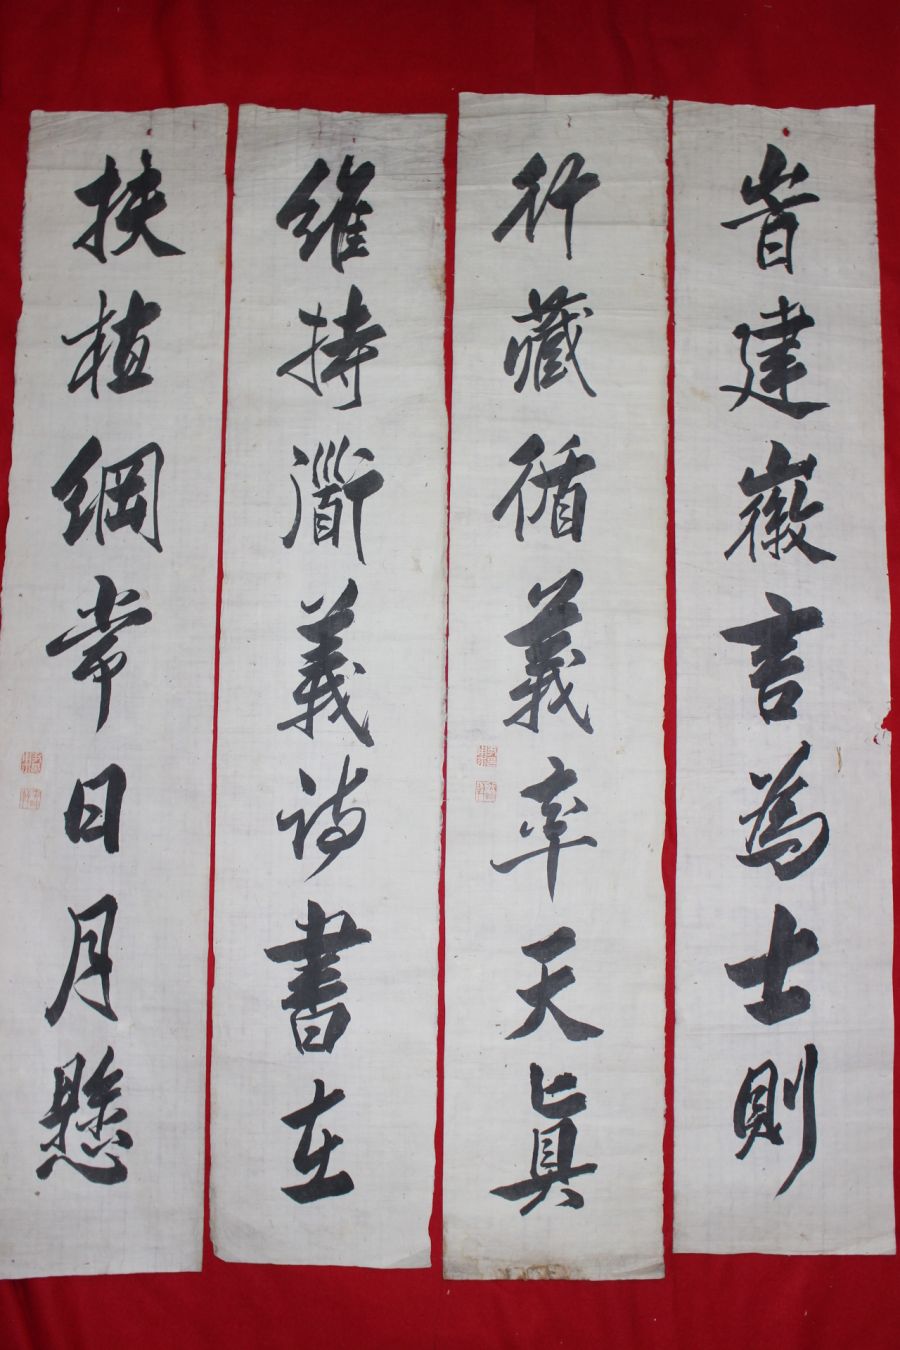 旹建徽言為士則
行藏循義率天眞
維持衜義詩書在
扶植綱常日月懸